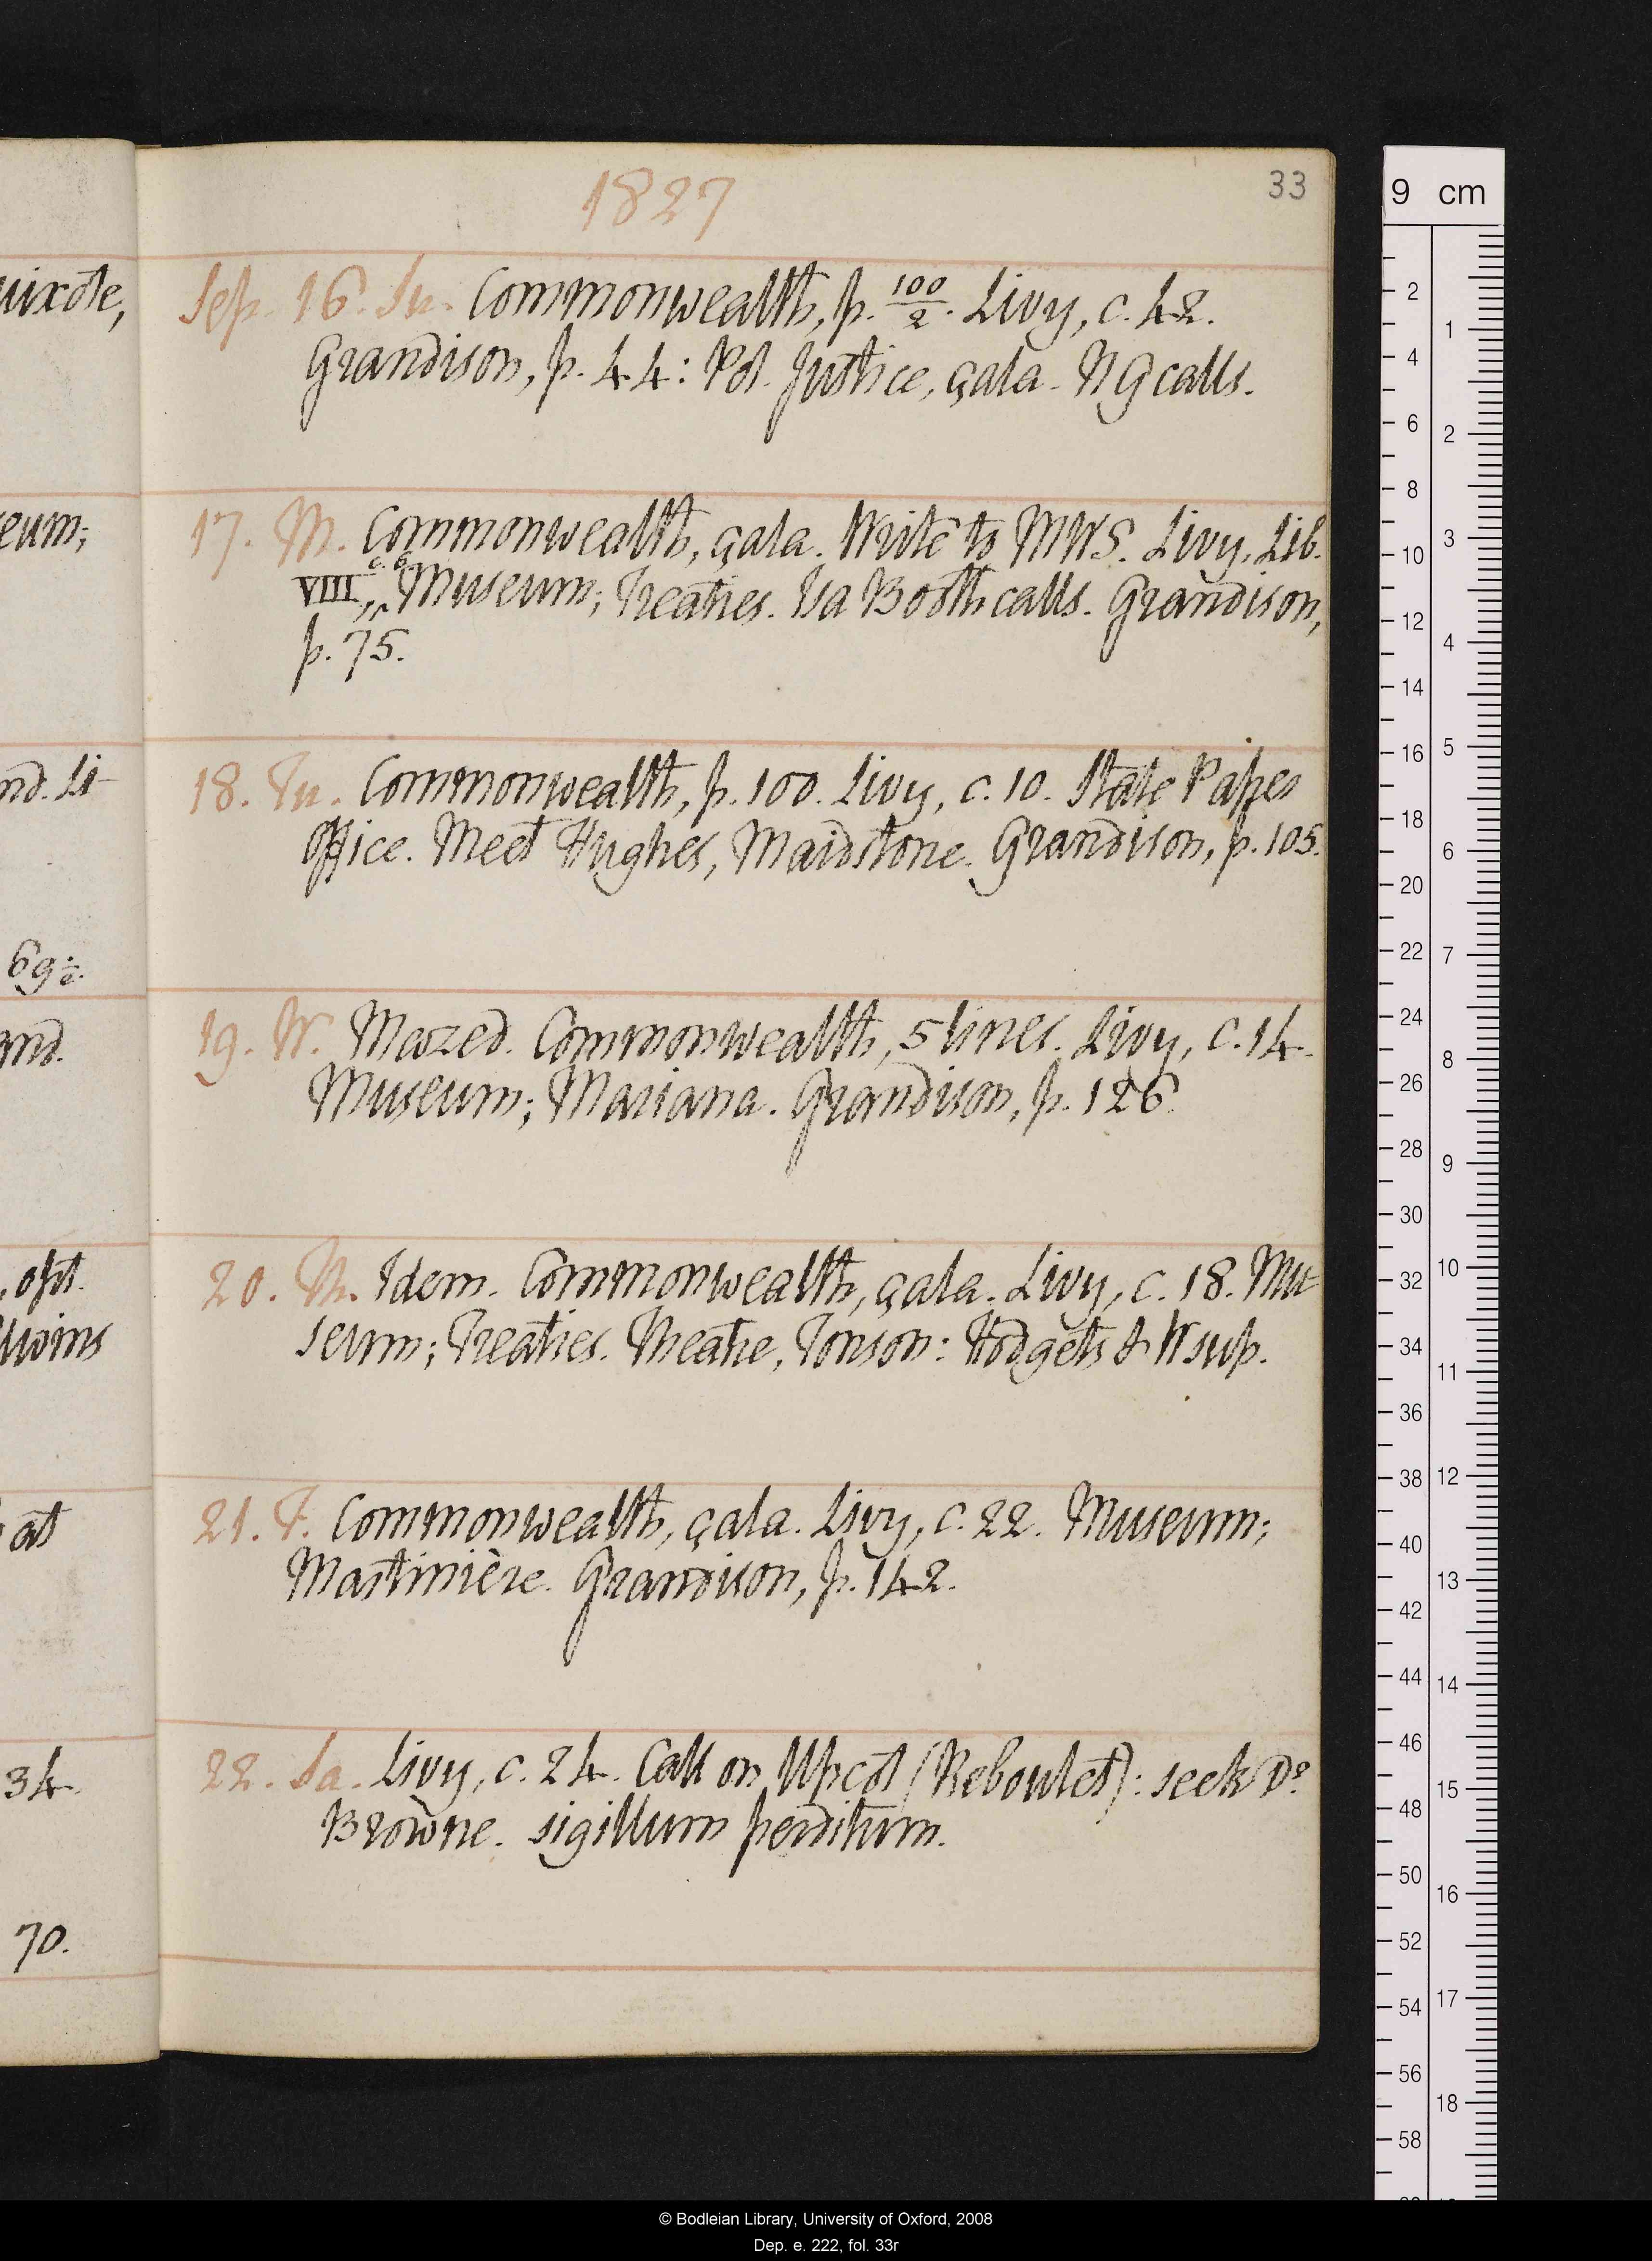 1827
33
uixote,
Sep. 16. Su. Commonwealth, p. 100/2. Livy, c. 42.
Grandison, p. 44: Pol. Justice, çala. N G calls.
eum;
17. M. Commonwealth, çala. Write to MWS. Livy, Lib.
VIII, c. 6. Museum; Treaties. Isa Booth calls. Grandison,
p. 75.
nd. Li-
18. Tu. Commonwealth, p. 100. Livy, c. 10. State Paper
Office. Meet Hughes, Maidstone. Grandison, p. 105.
69
and.
19. W. Mazed. Commonwealth, 5 lines. Livy, c. 14.
Museum; Mariana. Grandison, p. 126.
opt.
20. Th. Idem. Commonwealth, çala. Livy, c. 18. Mu-
seum; Treaties. Theatre, Tonson: Hodgets & W sup.
at
21. F. Commonwealth, çala. Livy, c. 22. Museum;
Martinière. Grandison, p. 142.
34.
22. Sa. Livy, c. 24. Call on Upcot (Reboulet): seek Do
Browne. sigillum perditum.
70.
9 cm
2 4 6 8 10 12 14 16 18 20 22 24 26 28 30 32 34 36 38 40 42 44 46 48 50 52 54 56 58
1 2 3 4 5 6 7 8 9 10 11 12 13 14 15 16 17 18
© Bodleian Library, University of Oxford, 2008
Dep. e. 222, fol. 33r